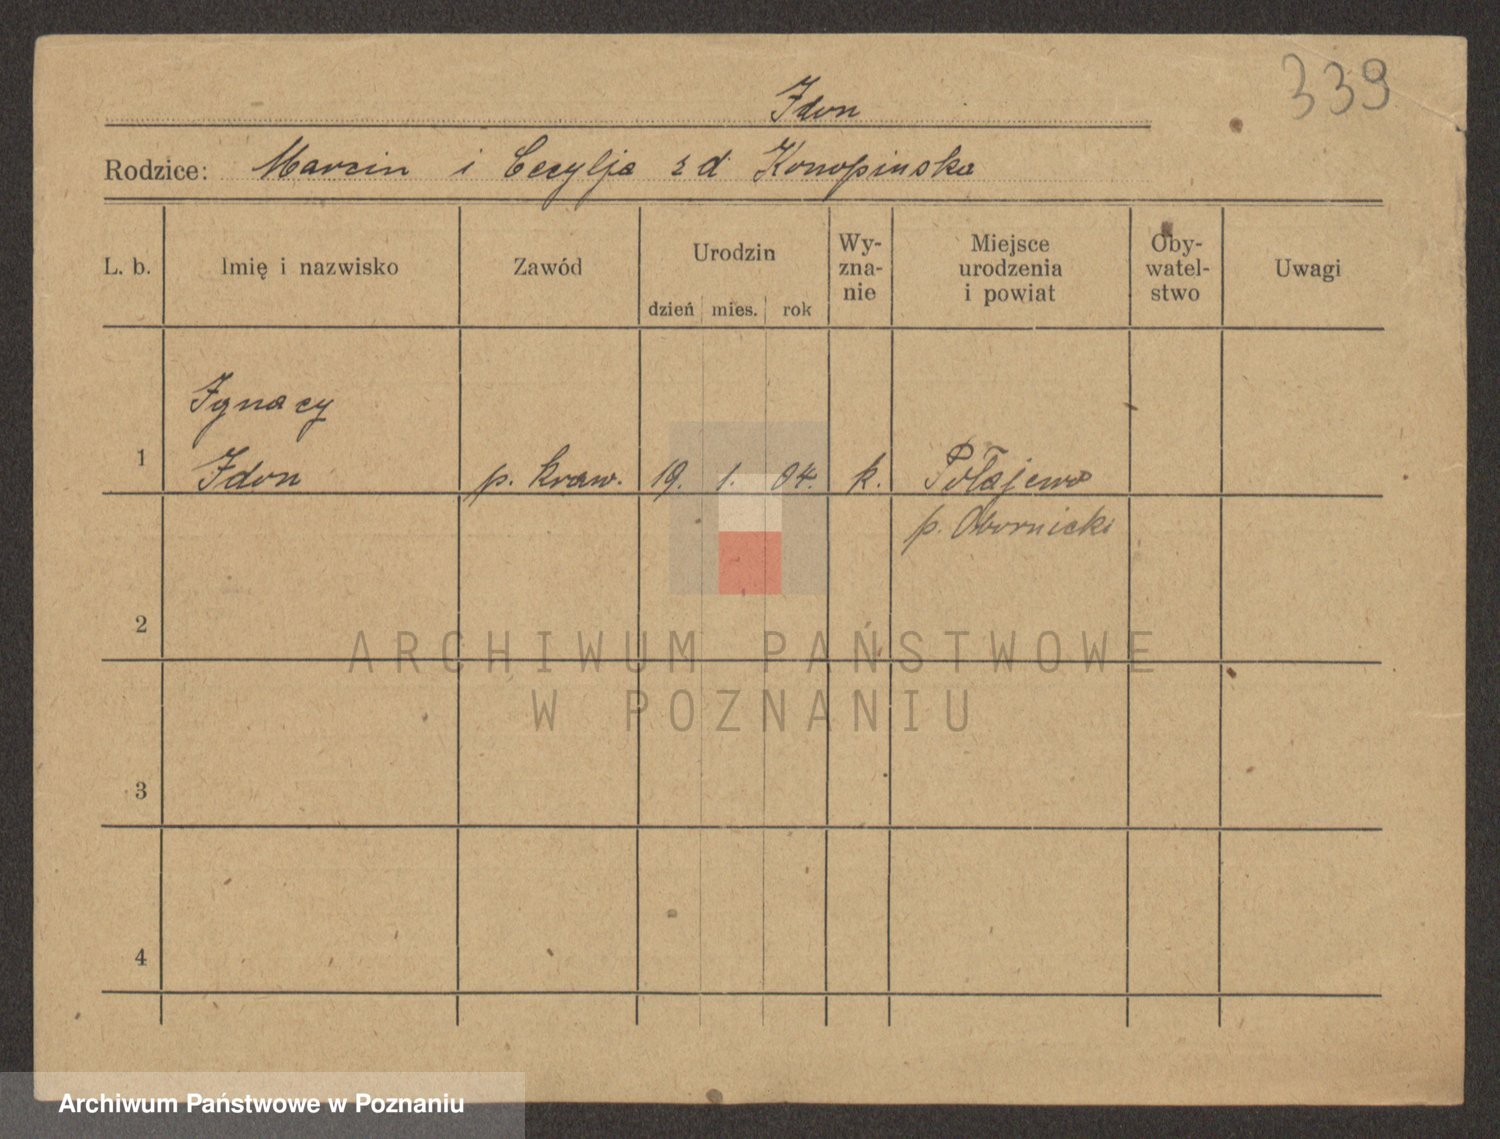 339
Idon
Rodzice: Marcin i Cecylja z d Konopinska
L. b. Imię i nazwisko Zawód Urodzin Wy-zna-nie Miejsce urodzenia i powiat Oby-watel-stwo Uwagi
dzień mies. rok
Ignacy
1 Idon p. kraw. 19. 1. 04. k. Połajewo
p. Obornicki
2
ARCHIWUM PAŃSTWOWE
W POZNANIU
3
4
Archiwum Państwowe w Poznaniu